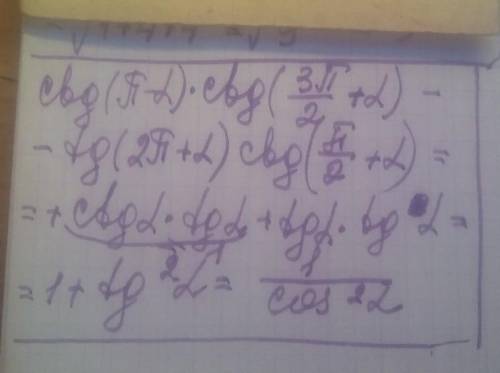 √1+4+4 = √9
ctg(π-α)·ctg(3π/2+α) -
- tg(2π+α) ctg(π/2+α) =
= + ctgα·tgα + tgα·tgα =
1
= 1 + tg²α = 1/cos²α